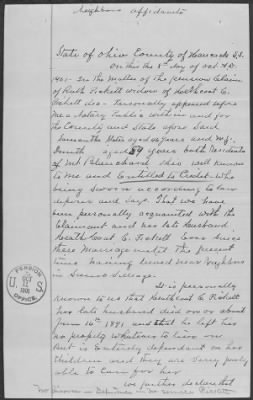 neighbors affidavits
State of Ohio County of Hancock S.S.
On this the 8th day of Oct A.D.
1901 In the Matter of the pension Claim
of Ruth Fickett widow of Heathcoat C.
Fickett dec - Personally appeared before
me a Notary Public within and for
the County and State afore Said
Samantha aged years and
aged 59 years both Residents
of Mt Blanchard Ohio well known
to me and Entitled to Credit Who
being Sworn according to law
deposes and Says That we have
been personally acquainted with the
Claimant and her late Husband
Heathcoat C. Fickett Ever since
there Marriage until the present
time having lived near Neighbors
in Village.
It is personally
known to us that Heathcoat C Fickett
her late husband died on or about
June 14th 1891 and that he left her
no property whatever to live on
But is Entirely dependant on her
Children and they are Very poorly
able to Care for her
we further declare that
PENSION
U.S.
OFFICE
OCT
1901